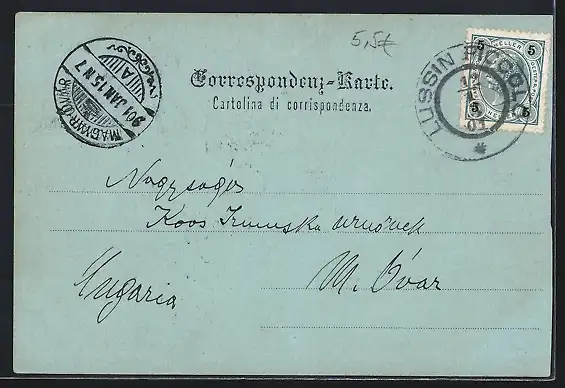 5,5€
Correspondenz-Karte.
Cartolina di corrispondenza.
LUSSIN PICCOLO
5 5
5 5
MAGYAR-ÓVÁR
901 JAN. 15. N 7
Nagyságos
Koos urnőnek
M. Óvár
Ungaria